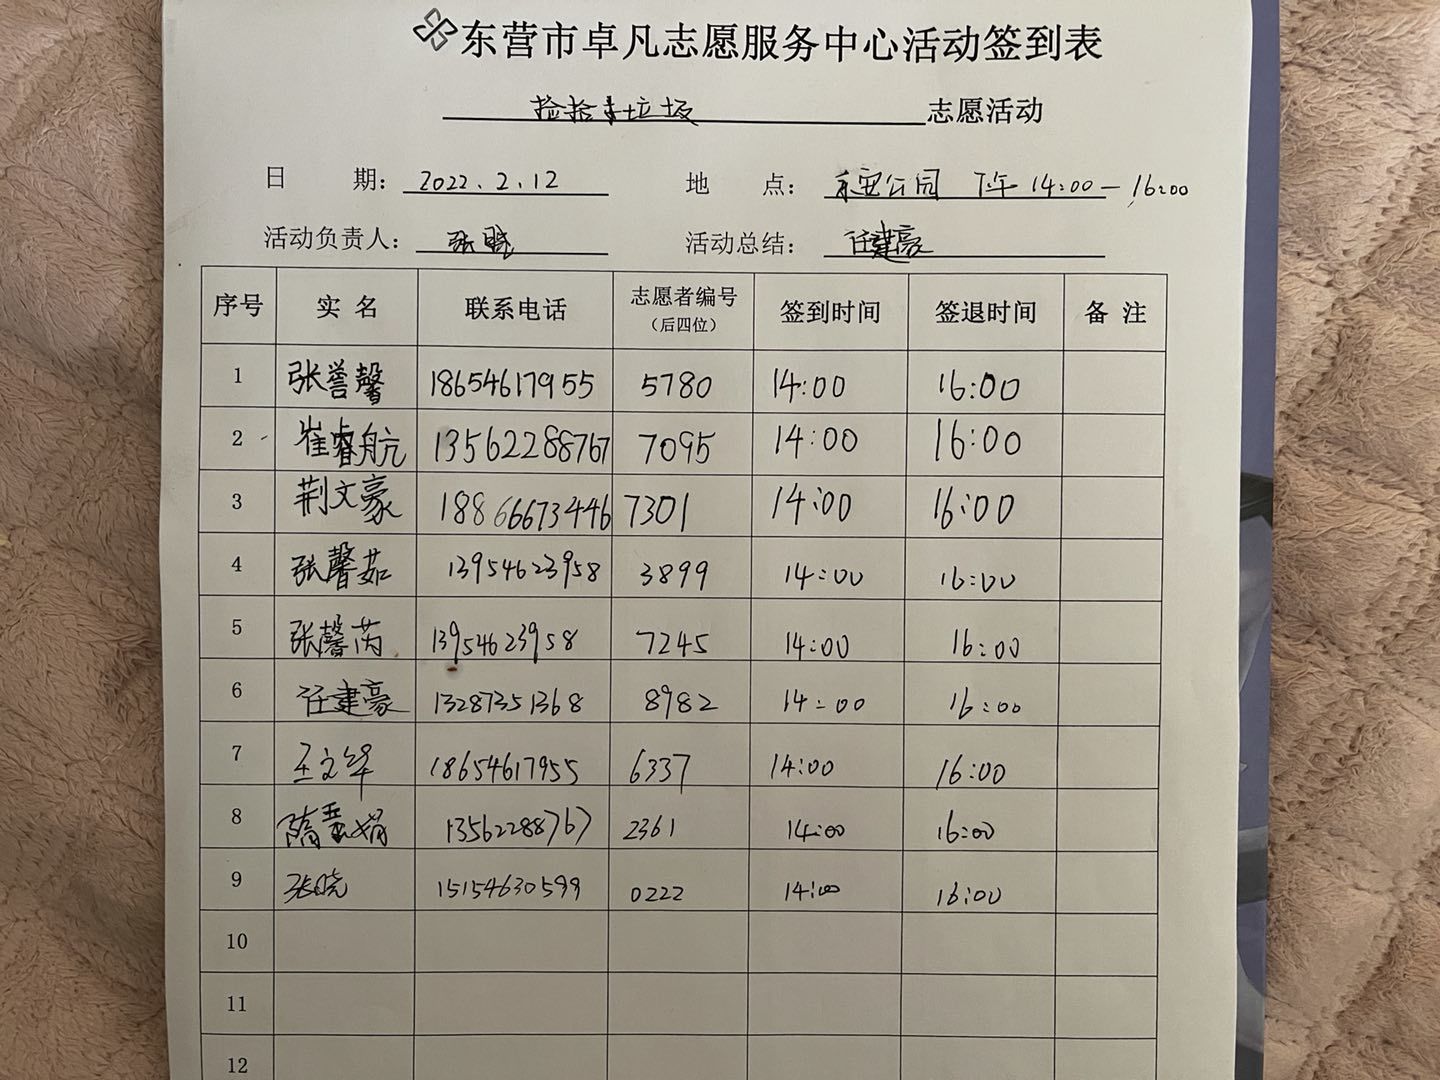 东营市卓凡志愿服务中心活动签到表
捡拾垃圾 志愿活动
日 期： 2022.2.12 地 点： 安公园 下午 14:00-16:00
活动负责人： 张晓 活动总结： 任建豪
序号 实名 联系电话 志愿者编号（后四位） 签到时间 签退时间 备注
1 张誉馨 18654617955 5780 14:00 16:00
2 崔睿航 13562288767 7095 14:00 16:00
3 荆文豪 18866673446 7301 14:00 16:00
4 张馨茹 13954623958 3899 14:00 16:00
5 张馨芮 13954623958 7245 14:00 16:00
6 任建豪 13287351368 8982 14:00 16:00
7 王文华 18654617955 6337 14:00 16:00
8 隋 娟 13562288767 2361 14:00 16:00
9 张晓 15154630599 0222 14:00 16:00
10
11
12